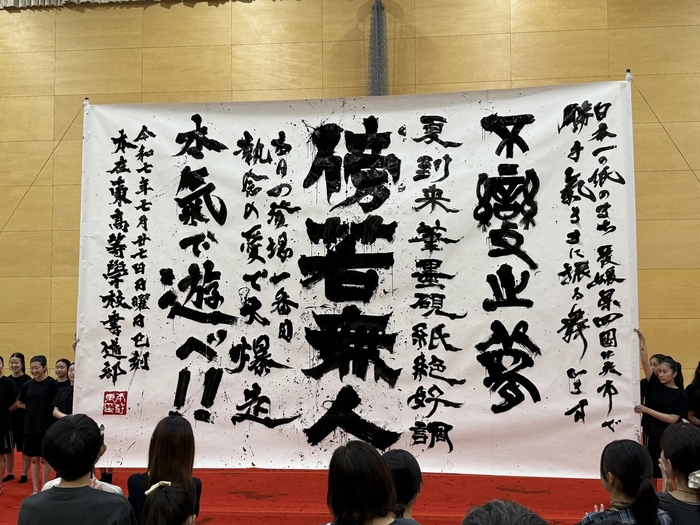 日本一の紙のまち 愛媛県四国中央市で
勝手氣ままに振る舞います
不 支止夢
夏到来筆墨硯紙絶好調
傍若無人
日の登場一番目
執念の愛で大爆走
本氣で遊べ!!
令和七年七月廿七日日曜日巳刻
本庄東高等學校書道部